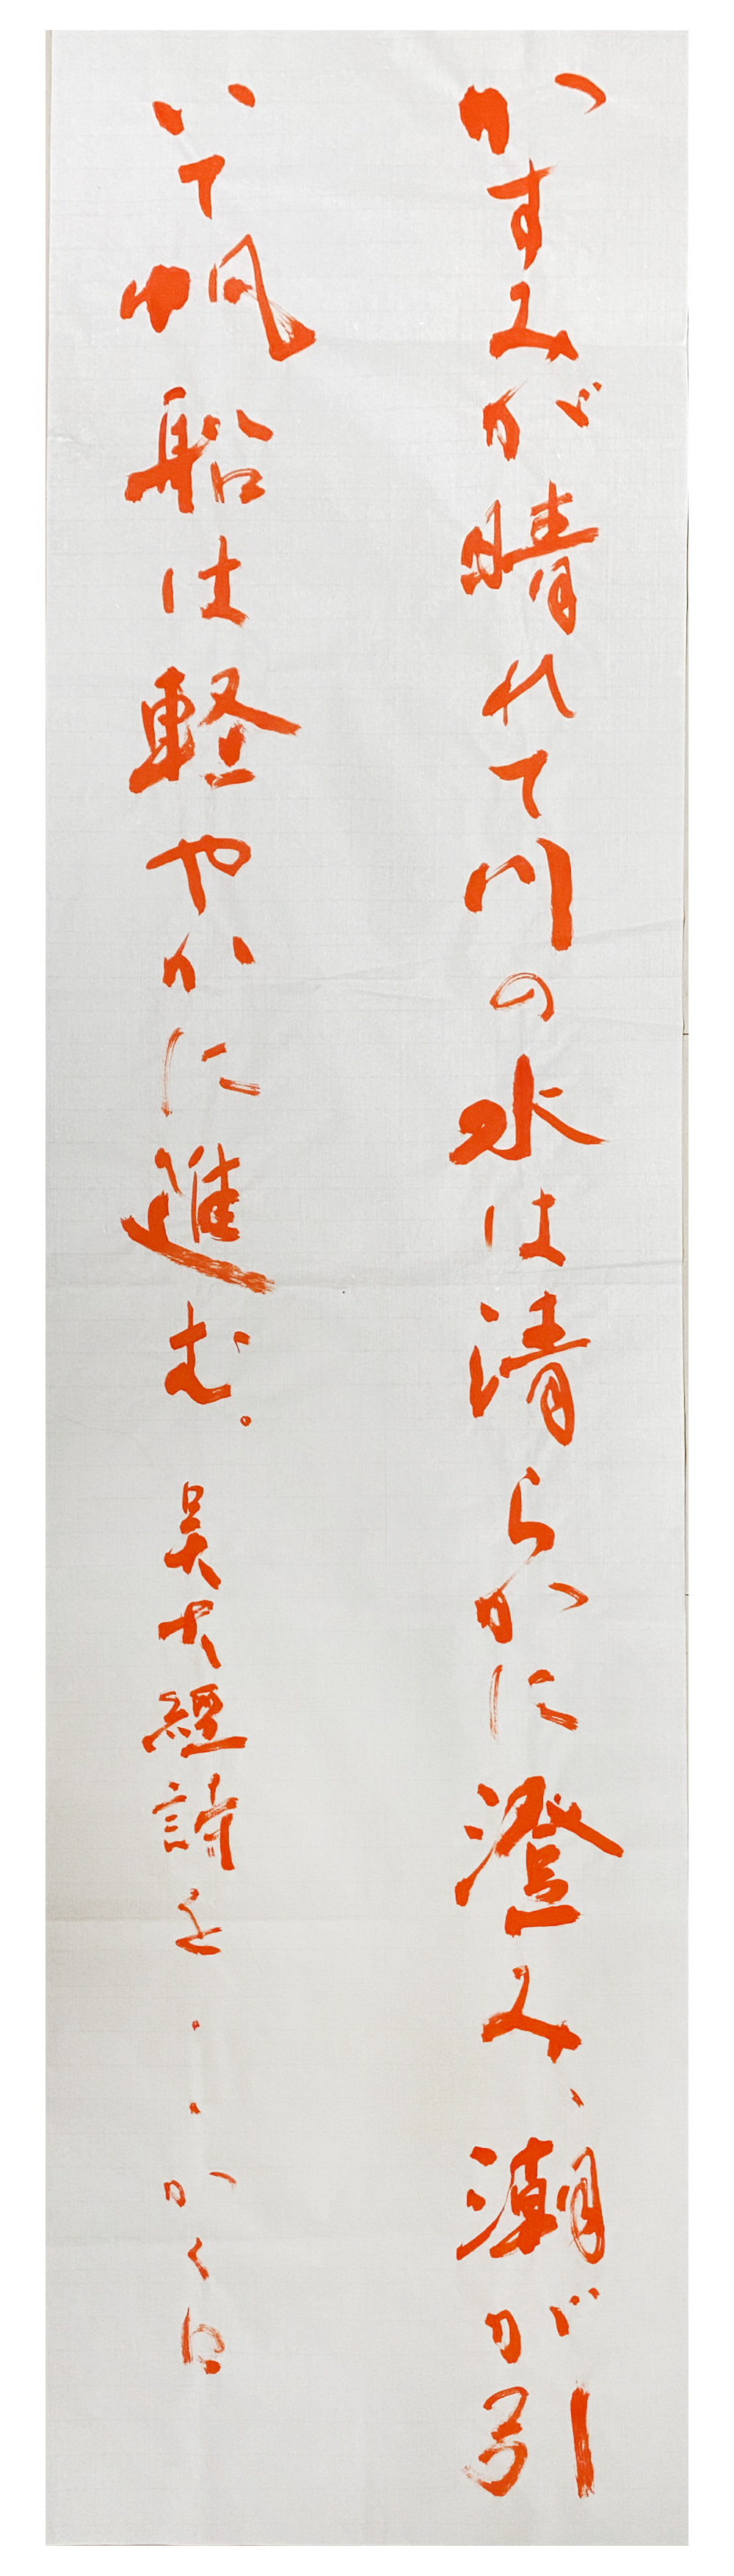 かすみが晴れて川の水は清らかに澄み、潮が引
いて帆船は軽やかに進む。 吴大經詩を・・かくに